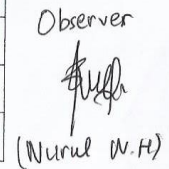 Observer
(Nurul N.H)